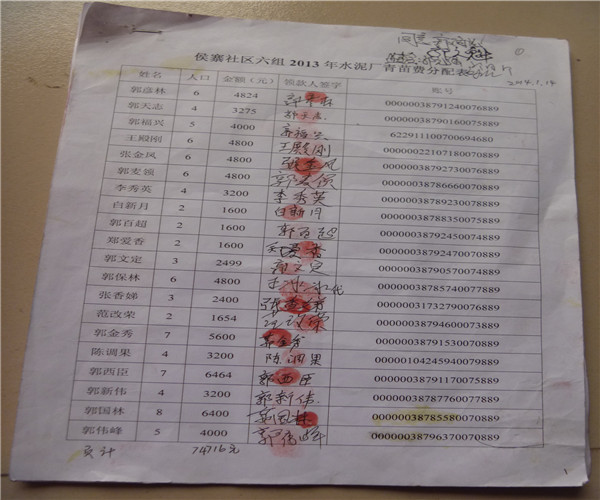 侯寨社区六组 2013 年水泥厂青苗费分配表
2014.1.14
姓名 人口 金额(元) 领款人签字 账号
郭彦林 6 4824 00000038791240076889
郭天志 4 3275 郭天志 00000038790160075889
郭福兴 5 4000 郭福兴 622911100700694680
王殿刚 6 4800 王殿刚 00000022107180070889
张金凤 6 4800 张金凤 00000038792730076889
郭麦领 6 4800 郭麦领 00000038786660070889
李秀英 4 3200 李秀英 00000038789230078889
白新月 2 1600 白新月 00000038788350075889
郭百超 2 1600 郭百超 00000038792450074889
郑爱香 2 1600 郑爱香 00000038792470070889
郭文定 3 2499 郭文定 00000038790570074889
郭保林 6 4800 00000038785740077889
张香娣 3 2400 00000031732790076889
范改荣 2 1654 范改荣 00000038794600073889
郭金秀 7 5600 郭金秀 00000038791530070889
陈调果 4 3200 陈调果 00000104245940079889
郭西臣 7 6464 郭西臣 00000038791170075889
郭新伟 4 3200 郭新伟 00000038787760077889
郭国林 8 6400 郭国林 00000038785580070889
郭伟峰 5 4000 郭伟峰 00000038796370070889
页计 74716元
1